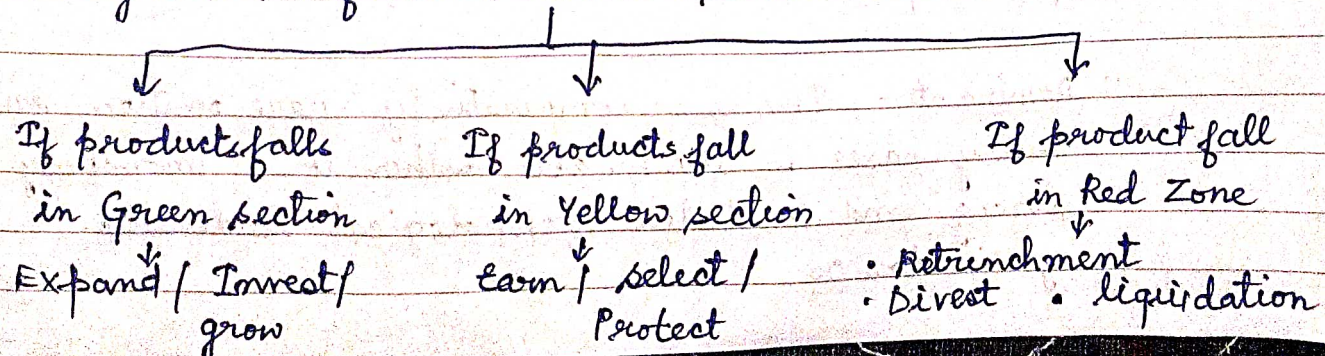 If products falls
in Green section
Expand / Invest/
grow
If products fall
in Yellow section
Earn / select /
Protect
If product fall
in Red Zone
• Retrenchment
• Divest • liquidation